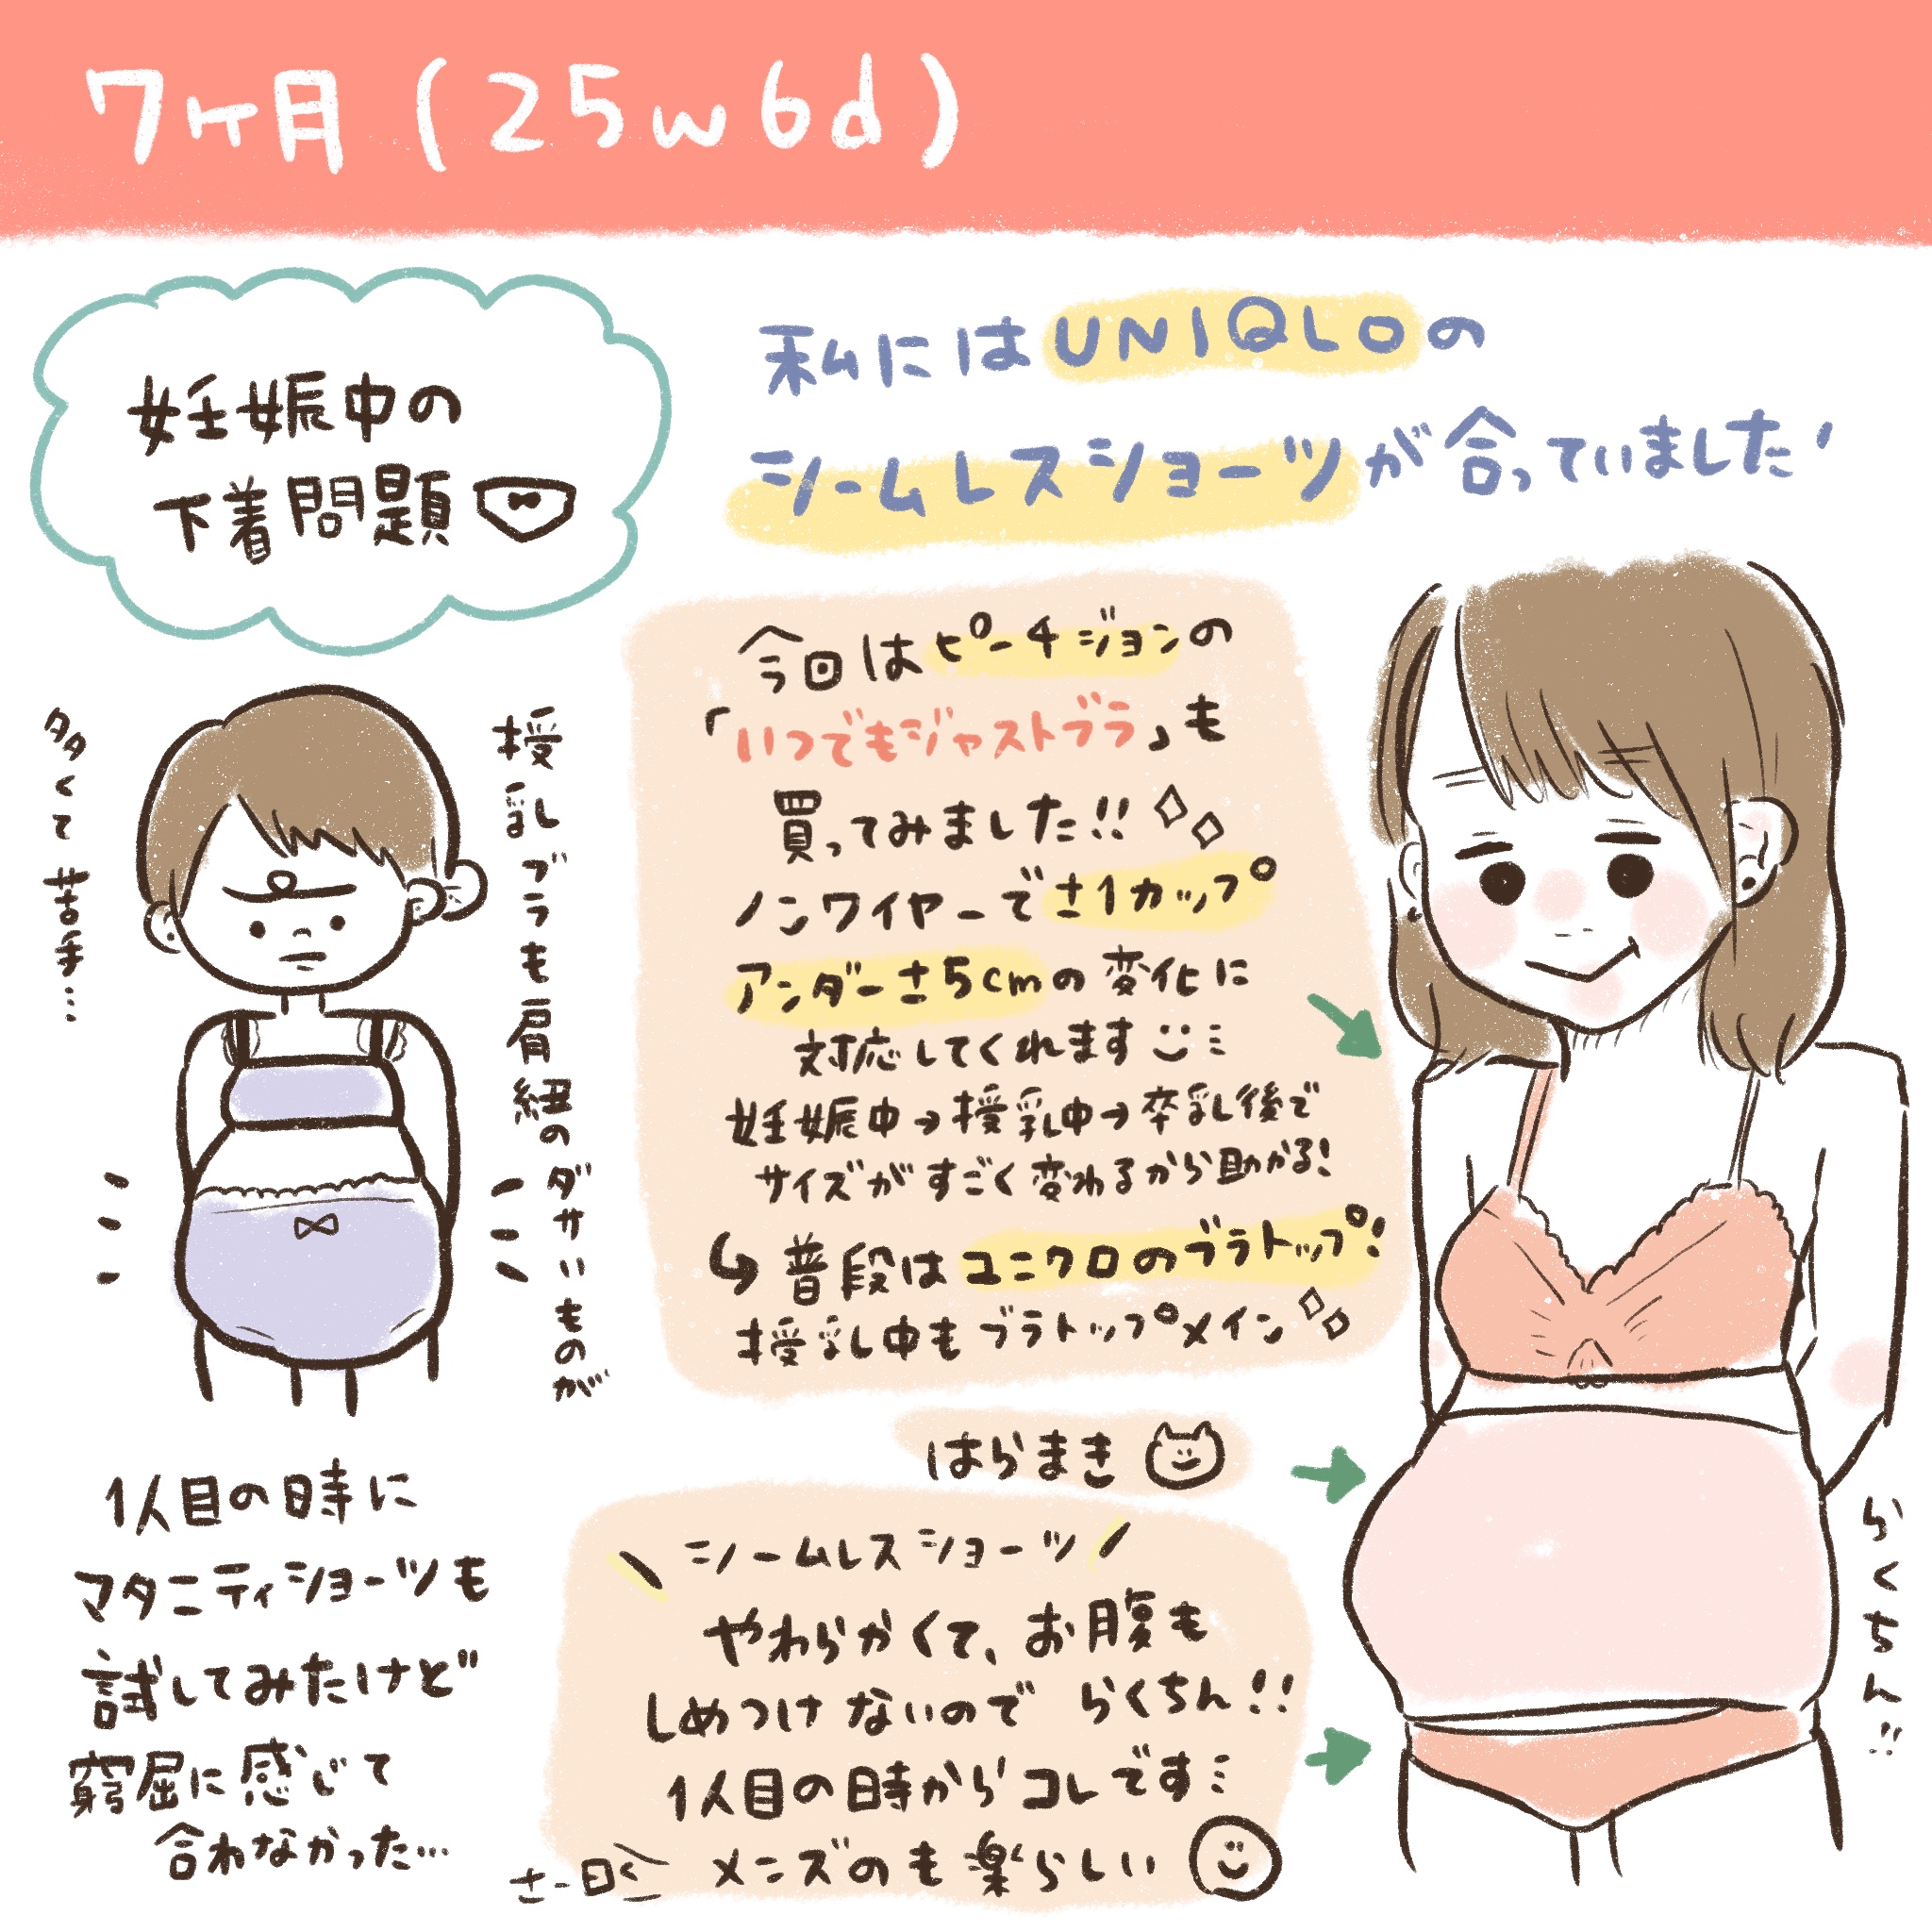 7ヶ月(25w6d)
妊娠中の
下着問題
私にはUNIQLOの
シームレスショーツが合っていました!
授乳ブラも肩紐のダサいものが
多くて苦手…
今回はピーチジョンの
「いつでもジャストブラ」も
買ってみました!!
ノンワイヤーで±1カップ
アンダー±5cmの変化に
対応してくれます
妊娠中→授乳中→卒乳後で
サイズがすごく変わるから助かる!
↳普段はユニクロのブラトップ!
授乳中もブラトップメイン
はらまき
1人目の時に
マタニティショーツも
試してみたけど
窮屈に感じて
合わなかった…
\ シームレスショーツ /
やわらかくて、お腹も
しめつけないので らくちん!!
1人目の時からコレです
さー曰く
メンズのも楽らしい
らくちん!!